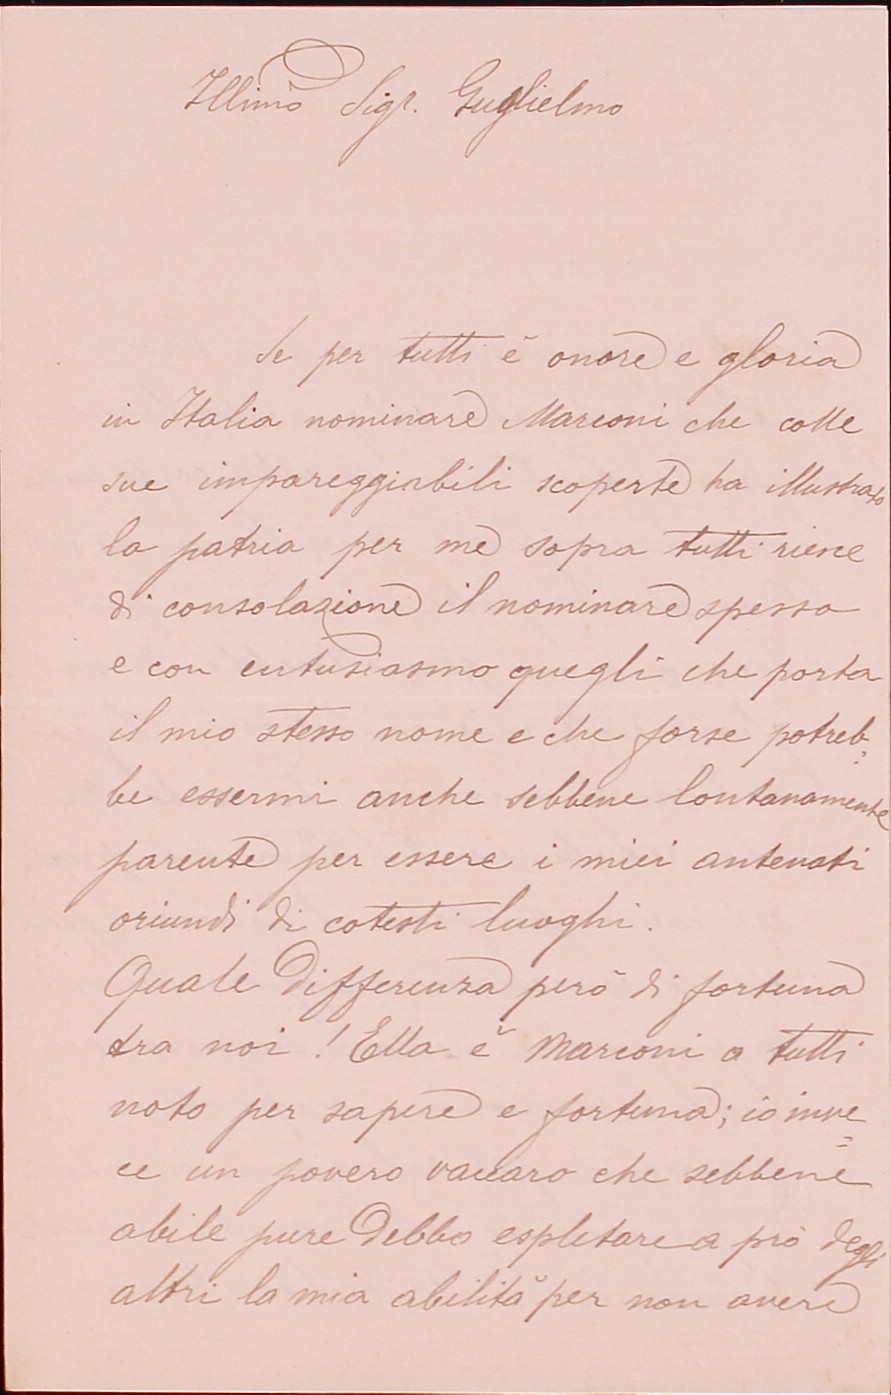 Illmo Sigr. Guglielmo
Se per tutti è onore e gloria
in Italia nominare Marconi che colle
sue impareggiabili scoperte ha illustrato
la patria per me sopra tutti riesce
di consolazione il nominare spesso
e con entusiasmo quegli che porta
il mio stesso nome e che forse potreb=
be essermi anche sebbene lontanamente
parente per essere i miei antenati
oriundi di cotesti luoghi.
Quale differenza però di fortuna
tra noi! Ella è Marconi a tutti
noto per sapere e fortuna; io inve=
ce un povero vaccaro che sebbene
abile pure debbo espletare a prò degli
altri la mia abilità per non avere